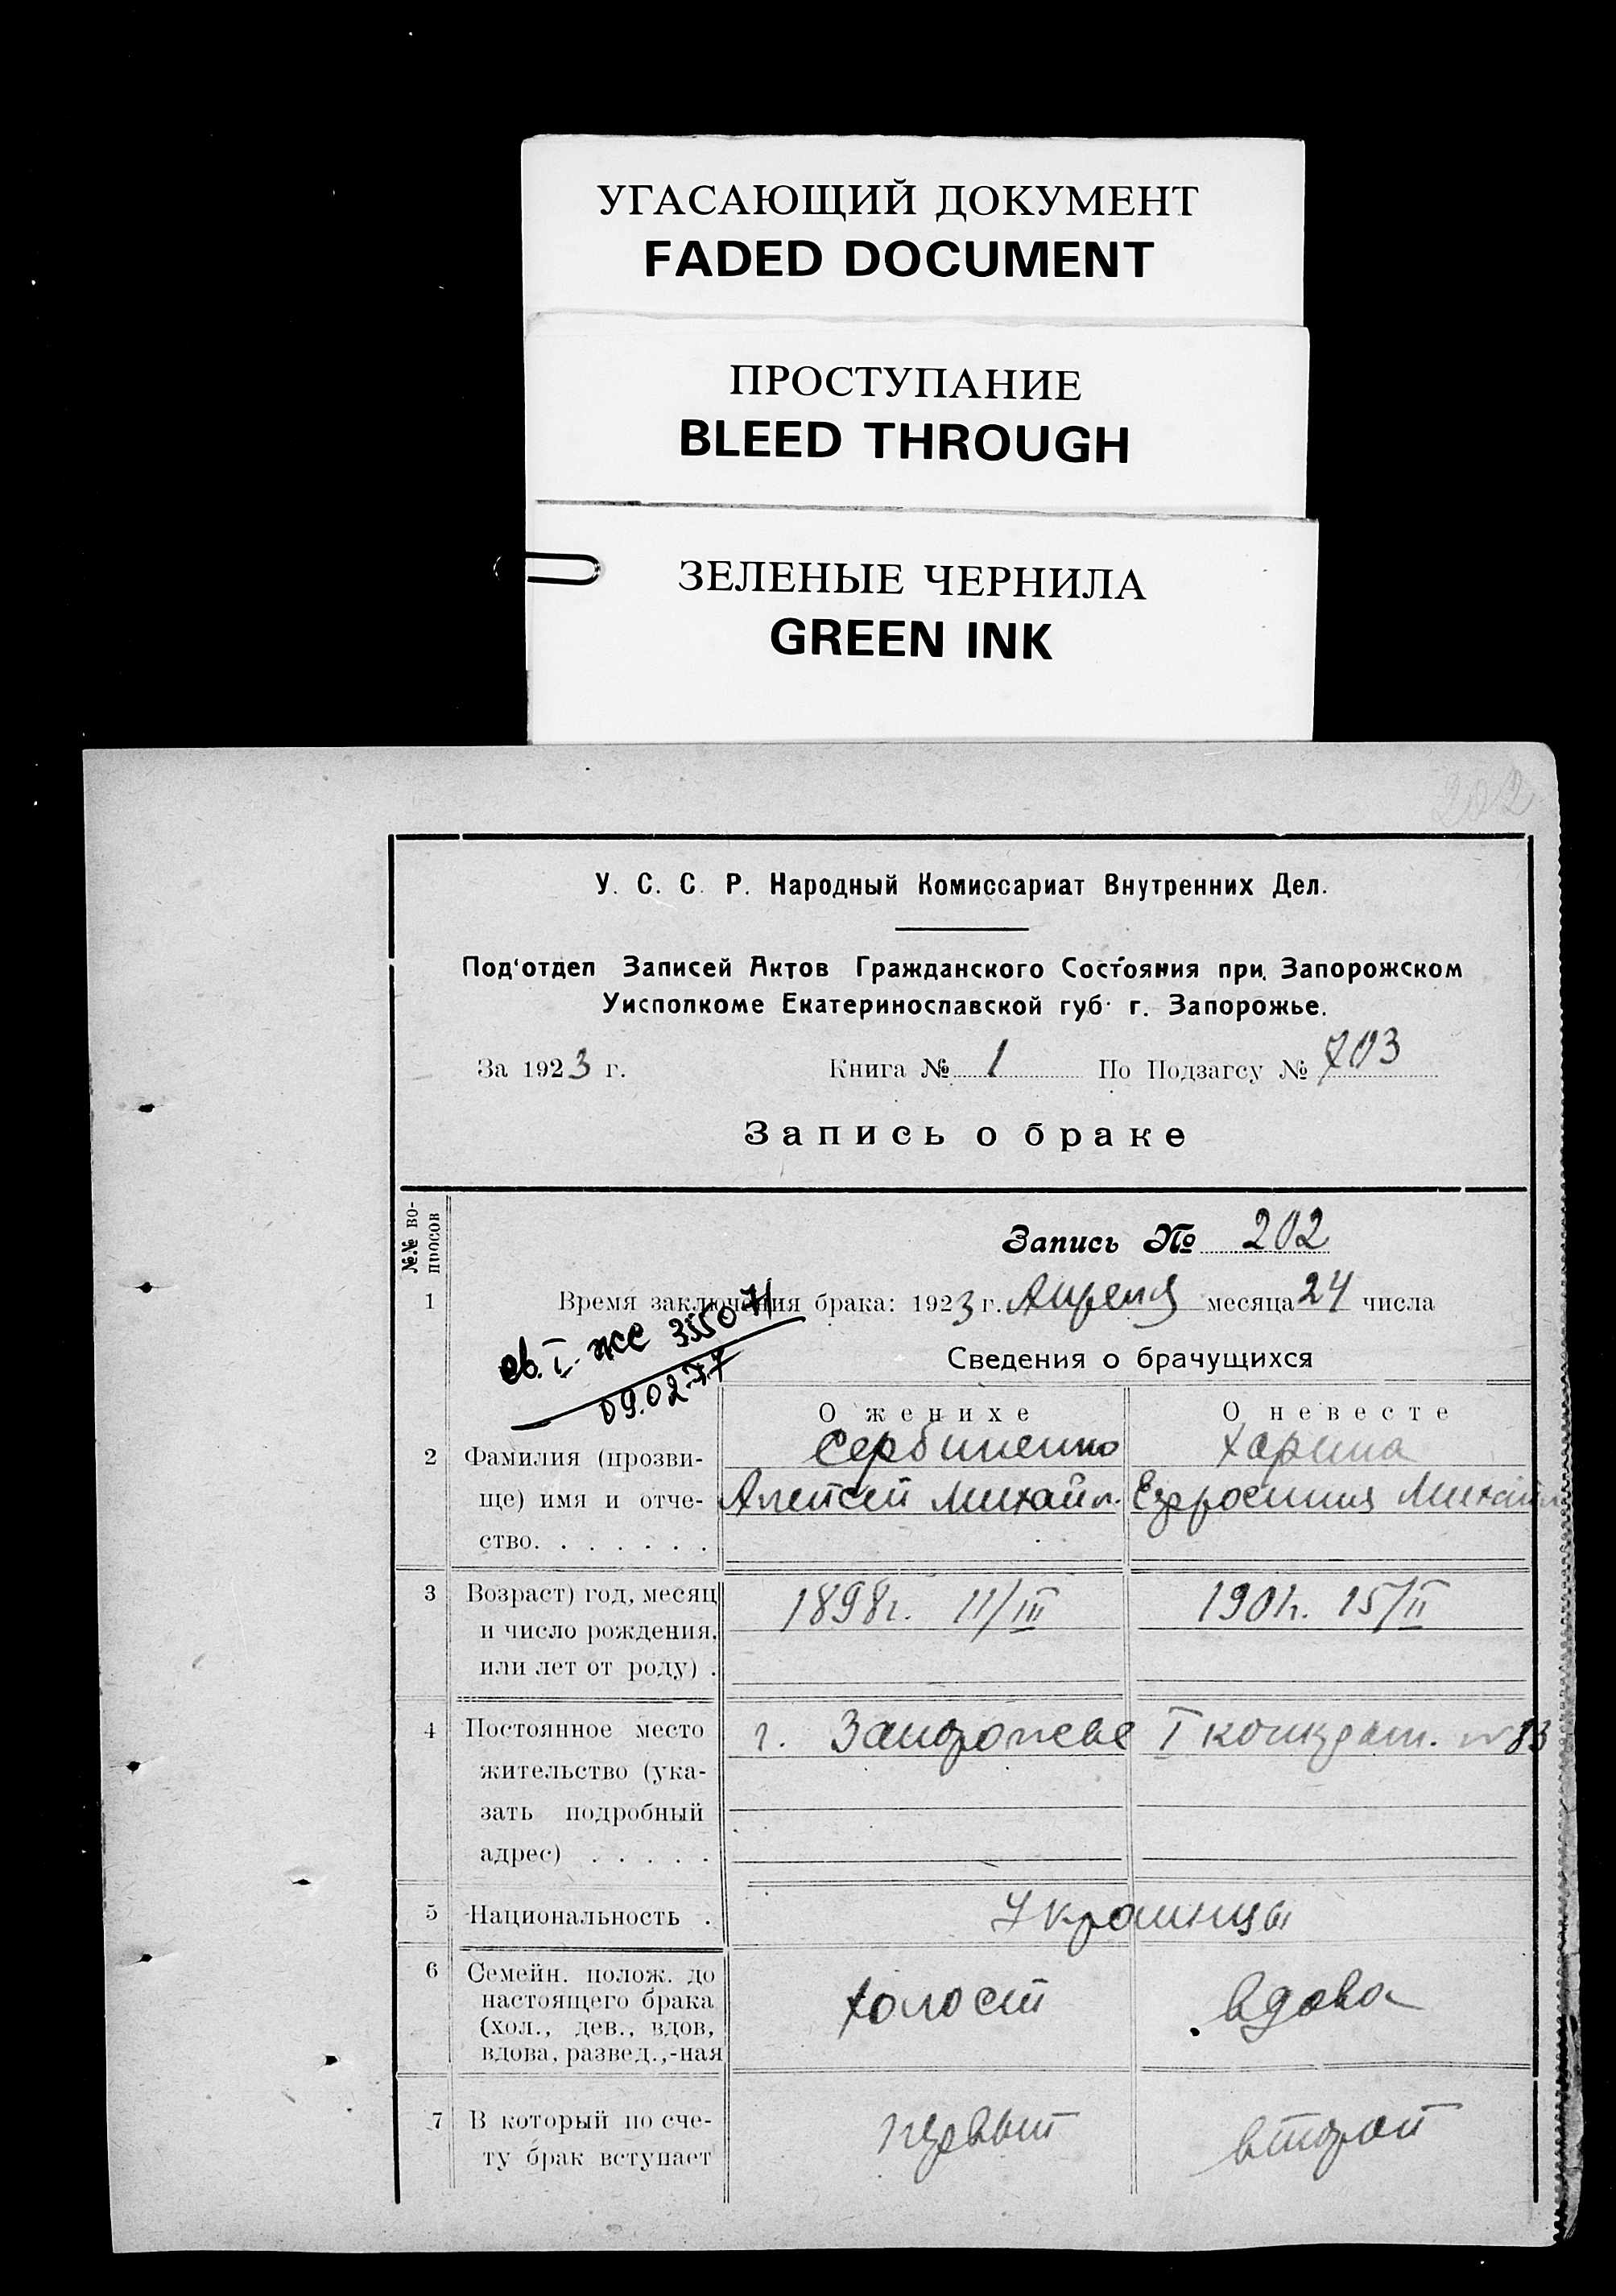 УГАСАЮЩИЙ ДОКУМЕНТ
FADED DOCUMENT
ПРОСТУПАНИЕ
BLEED THROUGH
ЗЕЛЕНЫЕ ЧЕРНИЛА
GREEN INK
202
У. С. С. Р. Народный Комиссариат Внутренних Дел.
Под'отдел Записей Актов Гражданского Состояния при Запорожском
Уисполкоме Екатеринославской губ. г. Запорожье.
За 1923 г. Книга № 1 По Подзагсу № 703
Запись о браке
№№ во-
просов
Запись № 202
1 Время заключения брака: 1923 г. Апреля месяца 24 числа
св. I- же 355071
09.02.77
Сведения о брачущихся
О женихе О невесте
2 Фамилия (прозви- Сербиненко Харина
ще) имя и отче- Алексей Михайл. Ефросиния Михайл
ство. . . . . . .
3 Возраст) год, месяц 1898г. 11/III 1901г. 15/II
и число рождения,
или лет от роду) .
4 Постоянное место г. Запорожье I № 83
жительство (ука-
зать подробный
адрес) . . . . .
5 Национальность . Украинцы
6 Семейн. полож. до
настоящего брака холост вдова
(хол., дев., вдов,
вдова, развед.,-ная
7 В который по сче- первый второй
ту брак вступает